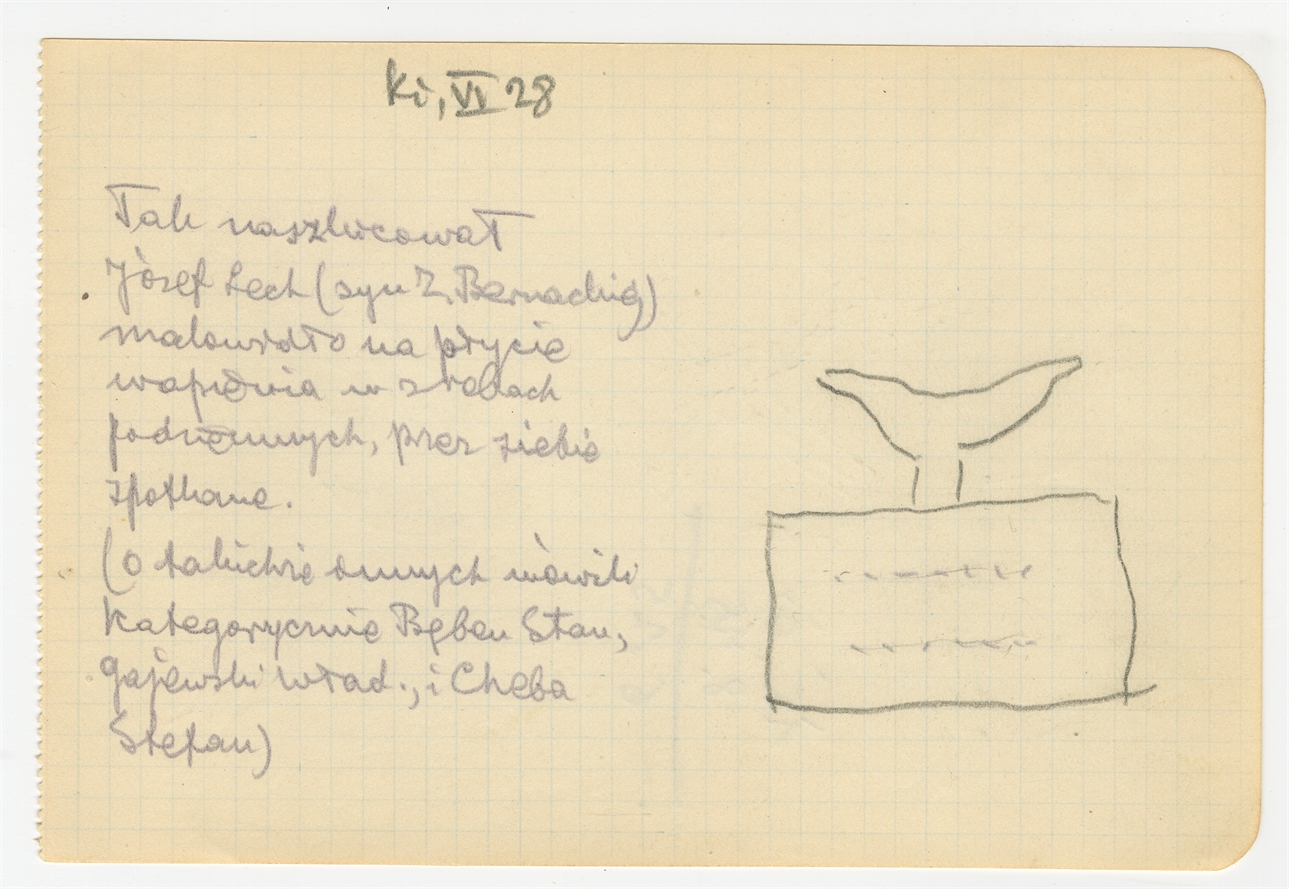 Ki, VI 28
Tak naszkicował
Józef Lech (syn Z. Bernachią)
malowidło na płycie
wapienia w zrobach
podziemnych, przez siebie
spotkane.
(o takichże innych mówili
kategorycznie Bęben Stan,
Gajewski Wład., i Cheba
Stefan)